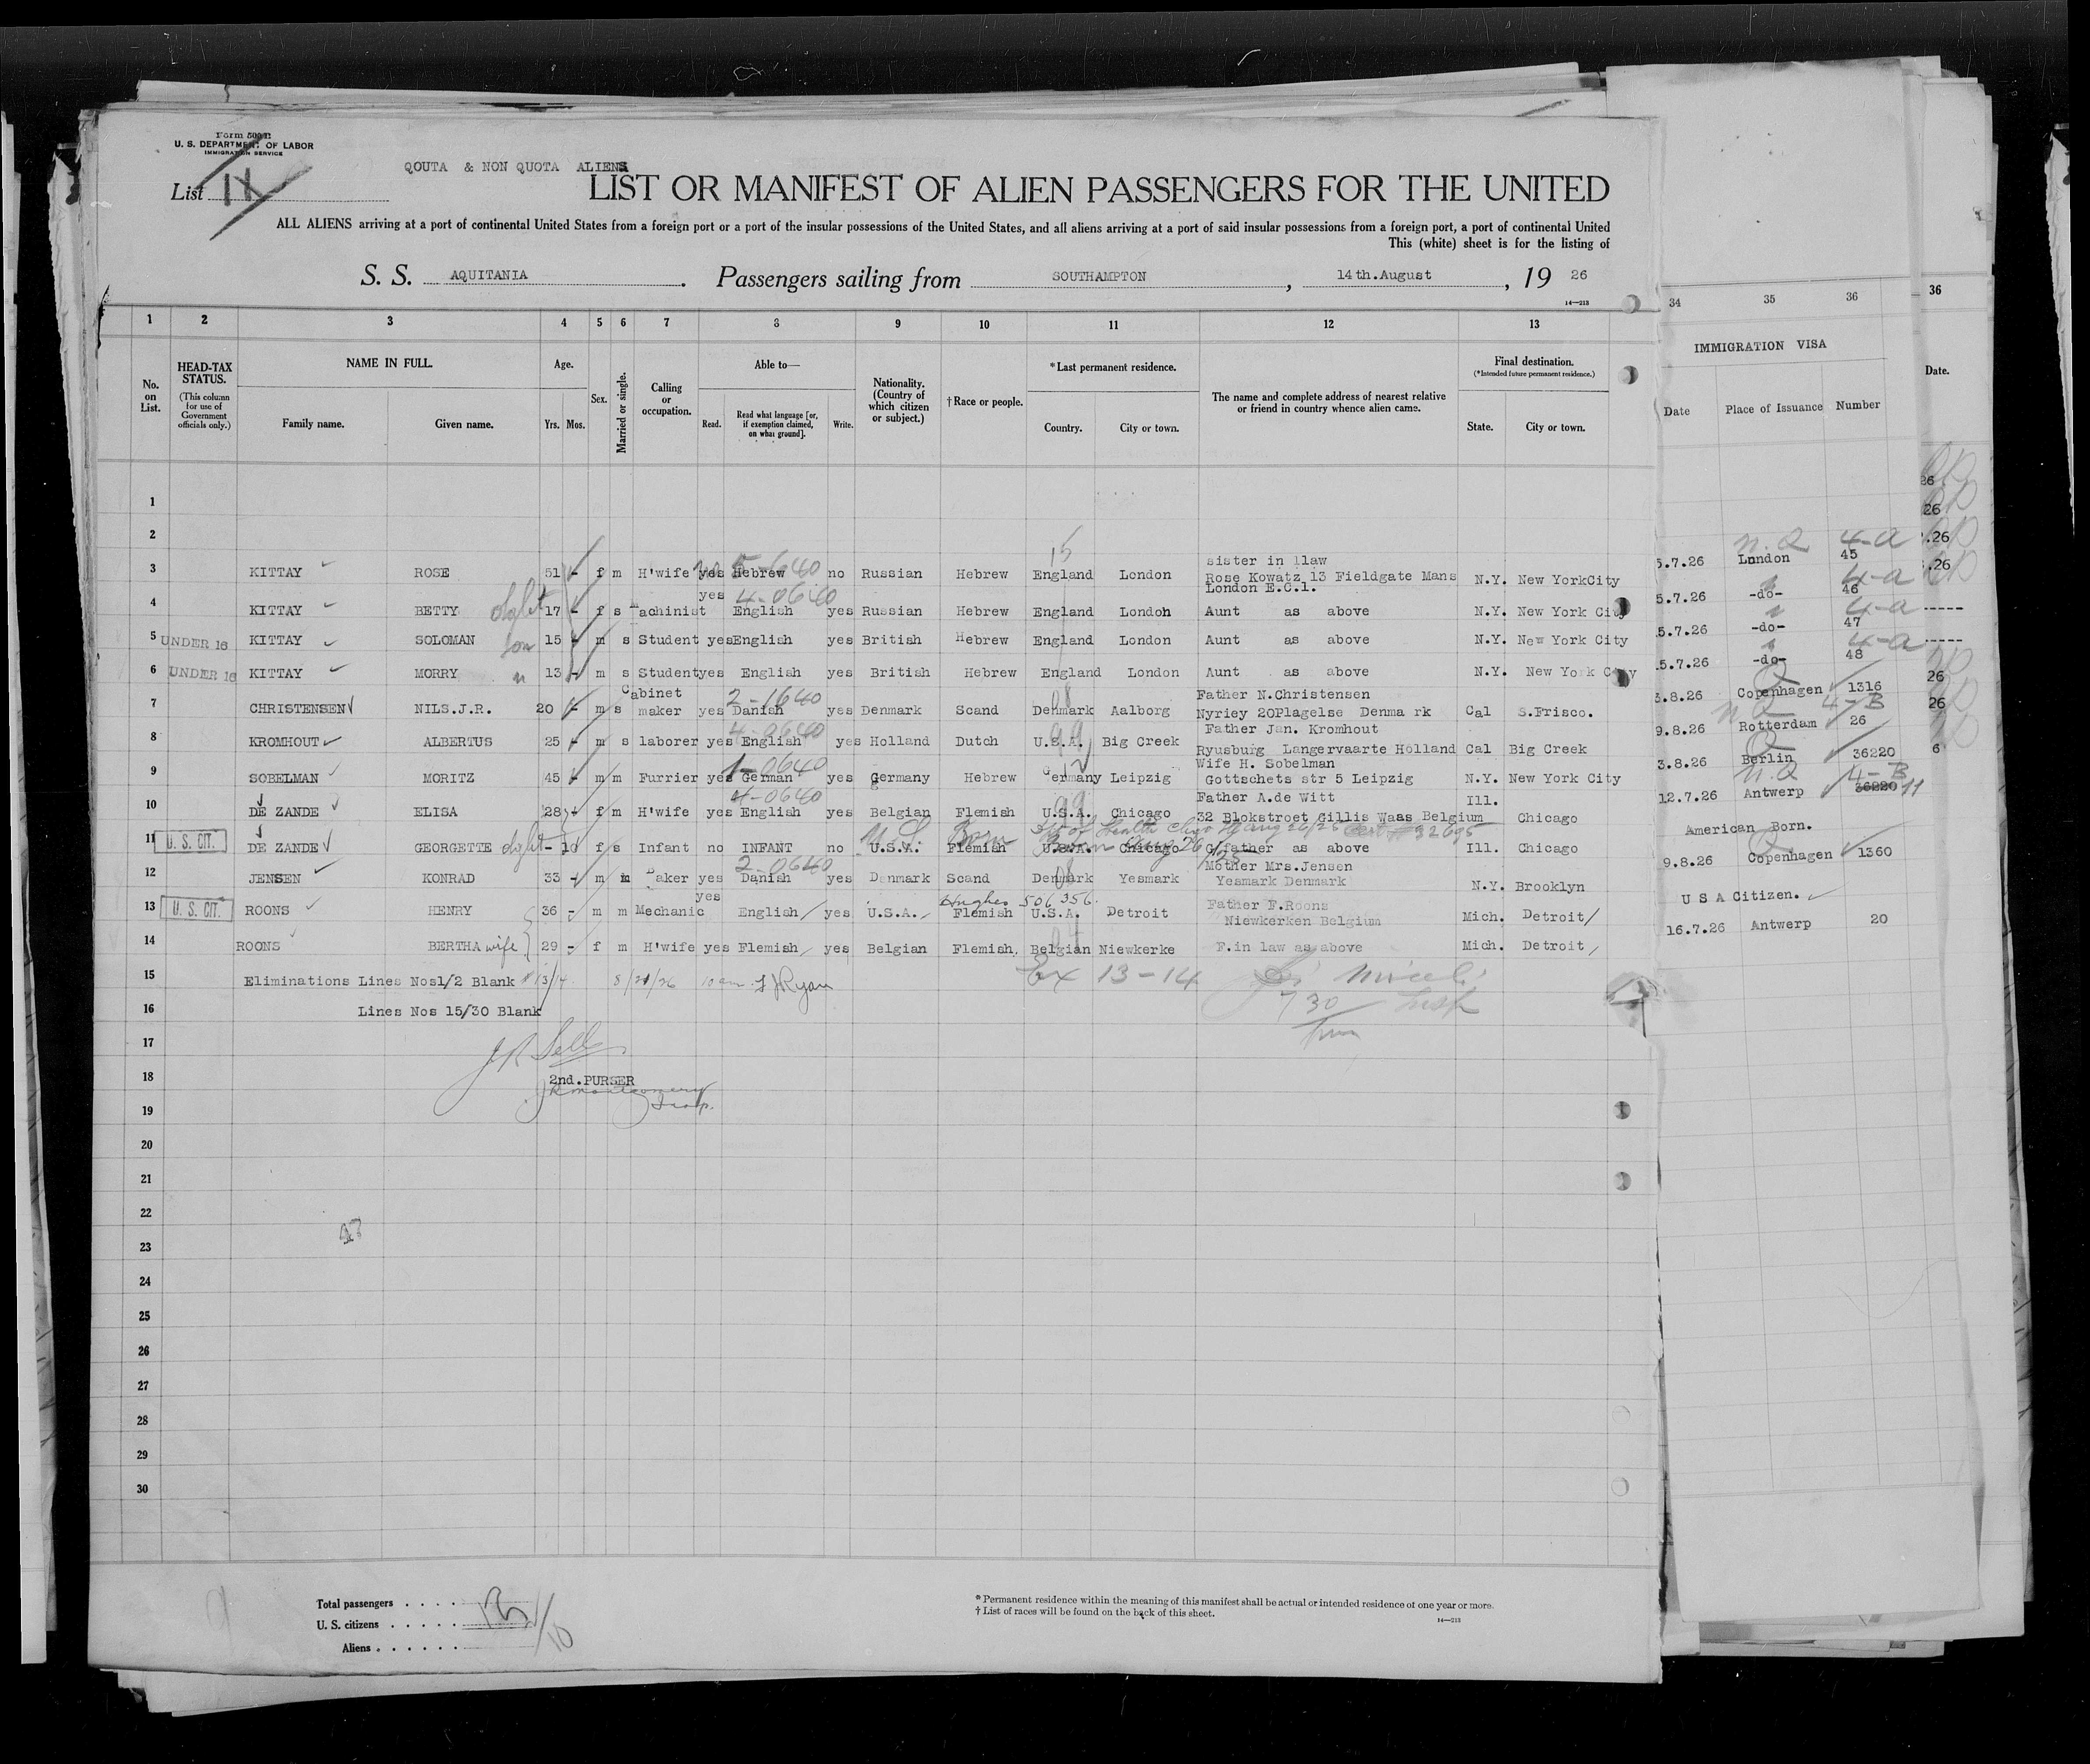 Form 500 B
U. S. DEPARTMENT OF LABOR
IMMIGRATION SERVICE
QOUTA & NON QUOTA ALIENS
List 11
LIST OR MANIFEST OF ALIEN PASSENGERS FOR THE UNITED
ALL ALIENS arriving at a port of continental United States from a foreign port or a port of the insular possessions of the United States, and all aliens arriving at a port of said insular possessions from a foreign port, a port of continental United
This (white) sheet is for the listing of
S. S. AQUITANIA. Passengers sailing from SOUTHAMPTON, 14th.August, 19 26
14—213
1 2 3 4 5 6 7 8 9 10 11 12 13 34 35 36 36
No. on List.
HEAD-TAX STATUS.
(This column for use of Government officials only.)
NAME IN FULL.
Family name. Given name.
Age.
Yrs. Mos.
Sex.
Married or single.
Calling or occupation.
Able to—
Read. Read what language [or, if exemption claimed, on what ground]. Write.
Nationality. (Country of which citizen or subject.)
†Race or people.
*Last permanent residence.
Country. City or town.
The name and complete address of nearest relative or friend in country whence alien came.
Final destination.
(*Intended future permanent residence.)
State. City or town.
IMMIGRATION VISA
Date Place of Issuance Number
Date.
1
2
3 KITTAY ROSE 51 - f m H'wife yes Hebrew 5-640 no Russian Hebrew England 15 London sister in llaw Rose Kowatz 13 Fieldgate Mans London E.C.1. N.Y. New YorkCity 5.7.26 London N.Q 45 4-a
4 KITTAY BETTY dght 17 - f s machinist yes English 4-0640 yes Russian Hebrew England London Aunt as above N.Y. New York City 5.7.26 -do- 46 4-a
5 UNDER 16 KITTAY SOLOMAN son 15 - m s Student yesEnglish yes British Hebrew England London Aunt as above N.Y. New York City 5.7.26 -do- 47 4-a
6 UNDER 16 KITTAY MORRY " 13 - m s Studentyes English yes British Hebrew England London Aunt as above N.Y. New York City 5.7.26 -do- 48 4-a
7 CHRISTENSEN NILS.J.R. 20 - m s Cabinet maker yes Danish 2-1640 yes Denmark Scand Denmark Aalborg Father N.Christensen Nyriey 20Plagelse Denma rk Cal S.Frisco. 3.8.26 Copenhagen Q 1316
8 KROMHOUT ALBERTUS 25 - m s laborer yes English 4-0640 yes Holland Dutch U.S.A. 99 Big Creek Father Jan. Kromhout Ryusburg Langervaarte Holland Cal Big Creek 9.8.26 Rotterdam N Q 26 4-B
9 SOBELMAN MORITZ 45 - m m Furrier yes German 1-0640 yes Germany Hebrew Germany Leipzig Wife H. Sobelman Gottschets str 5 Leipzig N.Y. New York City 3.8.26 Berlin Q 36220
10 DE ZANDE ELISA 28 - f m H'wife yes English 4-0640 yes Belgian Flemish U.S.A. 99 Chicago Father A.de Witt 32 Blokstroet Gillis Waas Belgium Ill. Chicago 12.7.26 Antwerp N.Q 4-B 36220 11
11 U. S. CIT. DE ZANDE GEORGETTE dght - 10 f s Infant no INFANT no U.S.A. Flemish U.S.A. Chicago G/father as above Ill. Chicago American Born.
U.S. Born
12 JENSEN KONRAD 33 - m m Baker yes Danish 2-0640 yes Denmark Scand Denmark Yesmark Mother Mrs.Jensen Yesmark Denmark N.Y. Brooklyn 9.8.26 Copenhagen Q 1360
13 U. S. CIT. ROONS HENRY 36 - m m Mechanic yes English yes U.S.A. Flemish U.S.A. Detroit Father F.Roons Niewkerken Belgium Mich. Detroit U S A Citizen.
Hughes 506356
14 ROONS BERTHA wife 29 - f m H'wife yes Flemish yes Belgian Flemish Belgian Niewkerke F.in law as above Mich. Detroit 16.7.26 Antwerp 20
15 Eliminations Lines Nos1/2 Blank 13/14 8/21/26 10 am Ryan Ex 13-14
16 Lines Nos 15/30 Blank 730 Insp
17
18 2nd.PURSER
Montgomery
Insp.
19
20
21
22
23
24
25
26
27
28
29
30
Total passengers
U. S. citizens
Aliens
*Permanent residence within the meaning of this manifest shall be actual or intended residence of one year or more.
†List of races will be found on the back of this sheet.
14—213